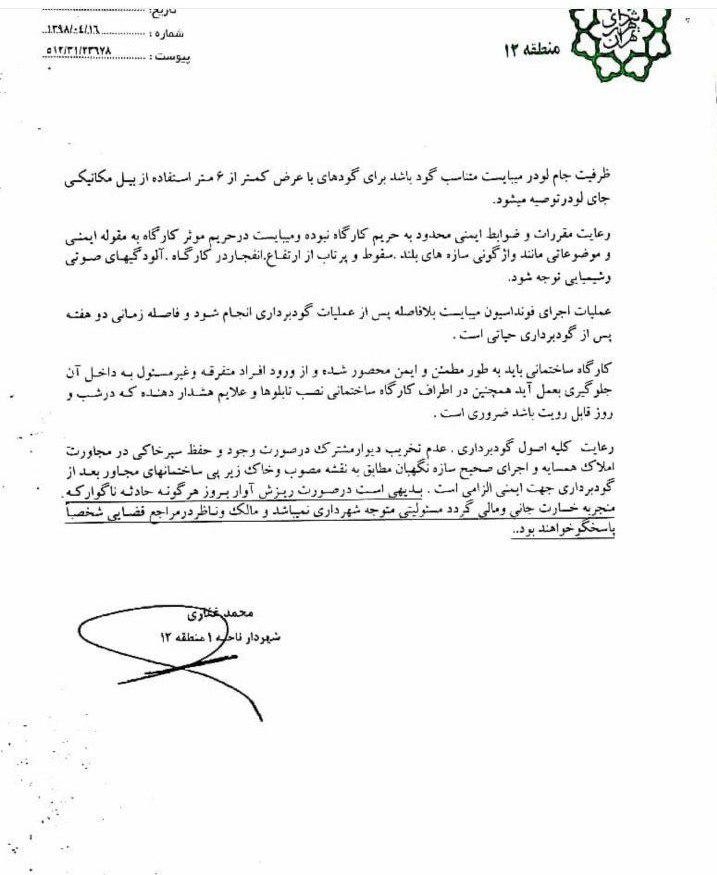 تاریخ:
شماره : ۱۳۹۸/۰۴/۱۶
پیوست : ۵۱۲/۳۱/۲۳۶۷۸
شهرداری تهران
منطقه ۱۲
ظرفیت جام لودر میبایست متناسب گود باشد برای گودهای با عرض کمتر از ۶ متر استفاده از بیل مکانیکی
جای لودرتوصیه میشود.
رعایت مقررات و ضوابط ایمنی محدود به حریم کارگاه نبوده ومیبایست درحریم موثر کارگاه به مقوله ایمنی
و موضوعاتی مانند واژگونی سازه های بلند .سقوط و پرتاب از ارتفاع.انفجاردر کارگاه .آلودگیهای صوتی
وشیمیایی توجه شود.
عملیات اجرای فونداسیون میبایست بلافاصله پس از عملیات گودبرداری انجام شود و فاصله زمانی دو هفته
پس از گودبرداری حیاتی است .
کارگاه ساختمانی باید به طور مطمئن و ایمن محصور شده و از ورود افراد متفرقه وغیرمسئول به داخل آن
جلوگیری بعمل آید همچنین در اطراف کارگاه ساختمانی نصب تابلوها و علایم هشدار دهنده که درشب و
روز قابل رویت باشد ضروری است .
رعایت کلیه اصول گودبرداری . عدم تخریب دیوارمشترک درصورت وجود و حفظ سپرخاکی در مجاورت
املاک همسایه و اجرای صحیح سازه نگهبان مطابق به نقشه مصوب وخاک زیر پی ساختمانهای مجاور بعد از
گودبرداری جهت ایمنی الزامی است . بدیهی است درصورت ریزش آوار بروز هرگونه حادثه ناگوارکه
منجربه خسارت جانی ومالی گردد مسئولیتی متوجه شهرداری نمیباشد و مالک وناظردرمراجع قضایی شخصاً
پاسخگوخواهند بود..
محمد غفاری
شهردار ناحیه ۱ منطقه ۱۲